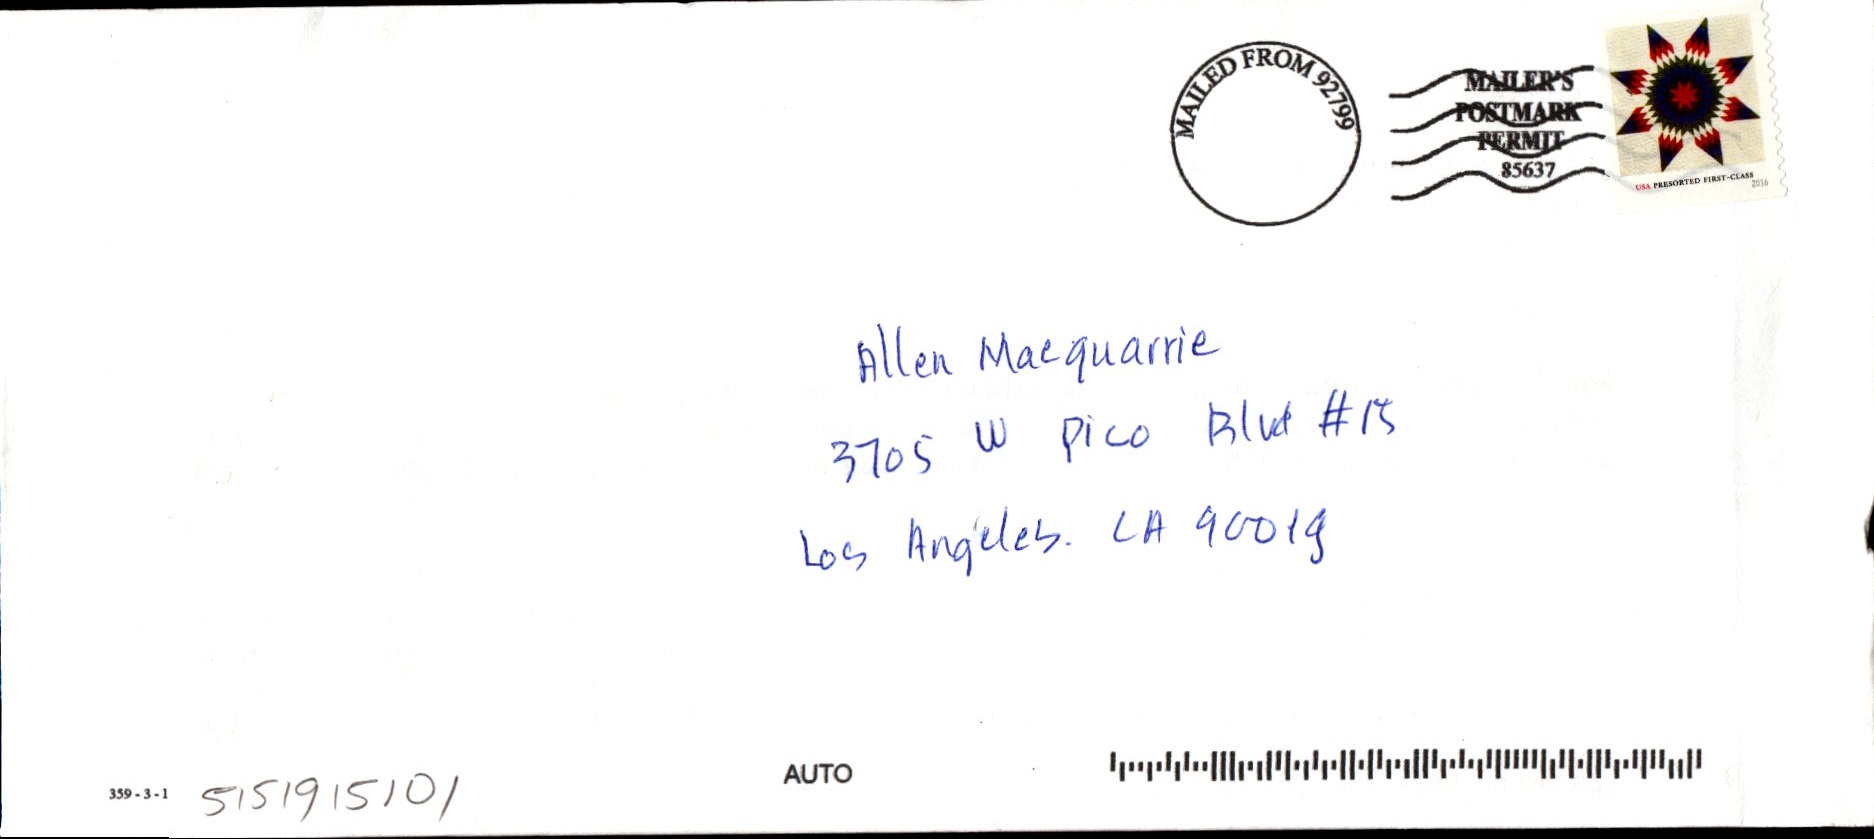 MAILED FROM 92799
MAILER'S
POSTMARK
PERMIT
85637
USA PRESORTED FIRST-CLASS
2016
Allen Macquarrie
3705 W Pico Blvd #15
Los Angeles. CA 90019
AUTO
359-3-1
5151915101